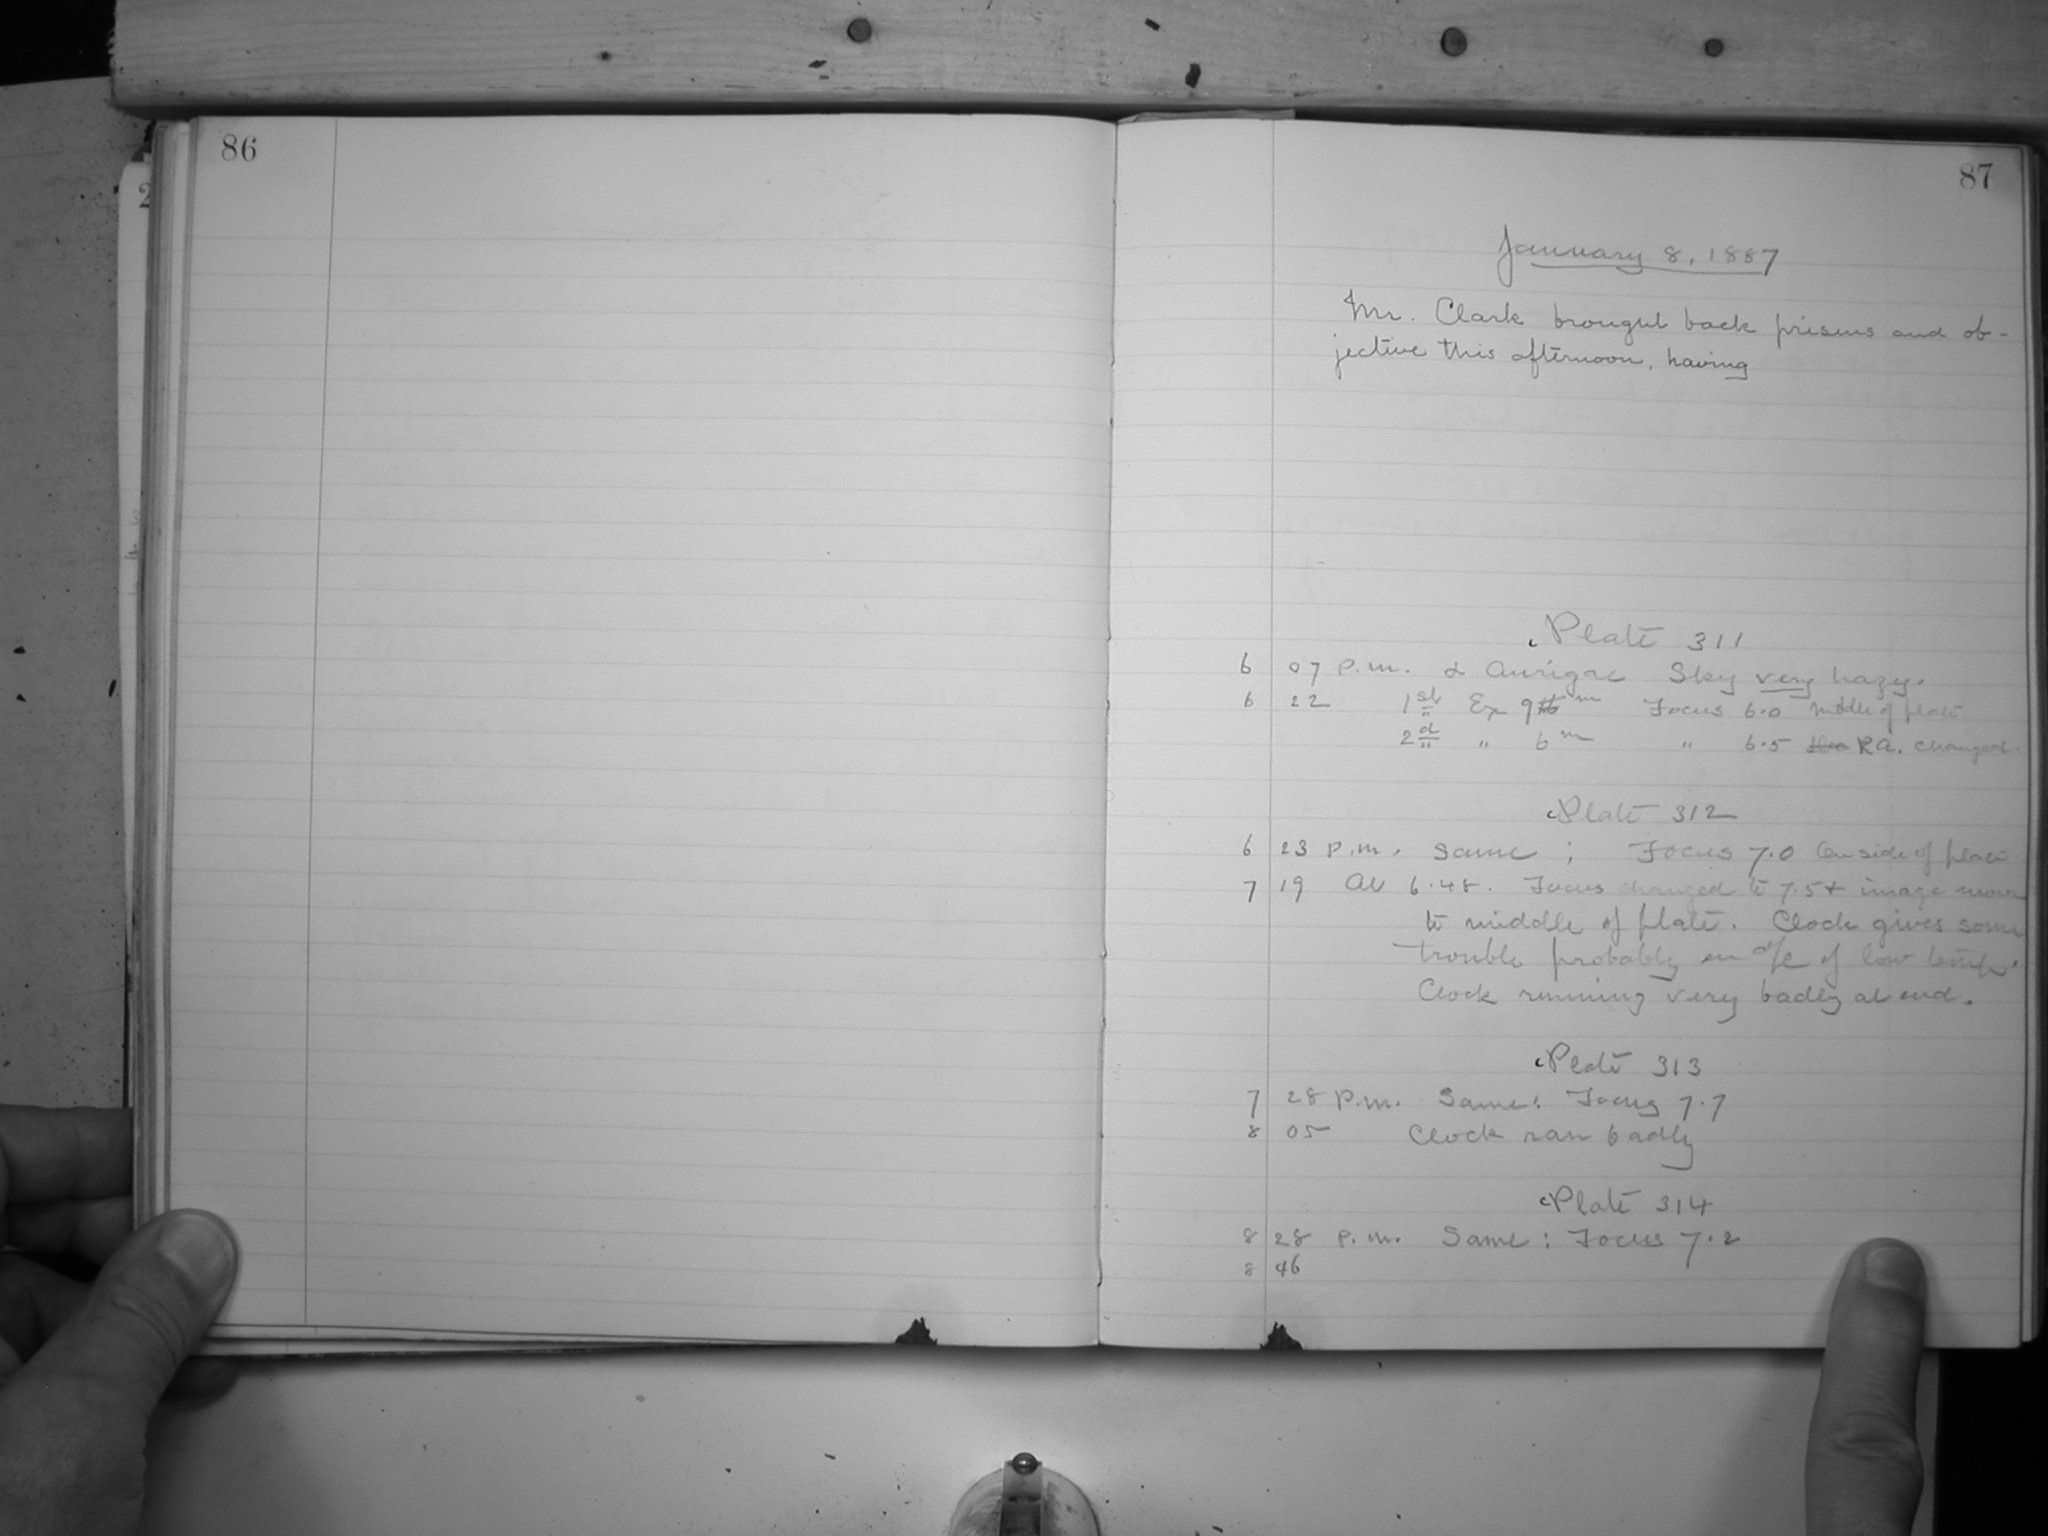 86
2
87
January 8, 1887
Mr. Clark brought back prisms and ob-
jective this afternoon, having
Plate 311
6 07 P.m. α Aurigae Sky very hazy.
6 22 1st Ex 9 m Focus 6.0 middle of plate
2d " 6m " 6.5 R.A. changed.
Plate 312
6 23 P.m. Same ; Focus 7.0 side of plate
7 19 At 6.48. Focus changed to 7.5 + image
to middle of plate. Clock gives some
trouble probably on a/c of low temp.
Clock running very badly at end.
Plate 313
7 28 P.m. Same: Focus 7.7
8 05 Clock ran badly
Plate 314
8 28 P.m. Same: Focus 7.2
8 46